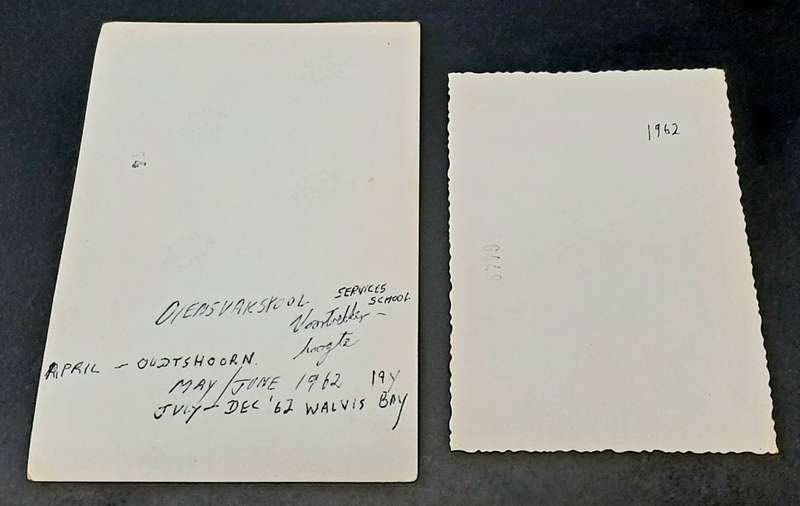 DIENSVAKSKOOL SERVICES SCHOOL
Voortrekker-
hoogte
APRIL - OUDTSHOORN.
MAY/JUNE 1962 19y
JULY - DEC '62 WALVIS BAY
1962
6449